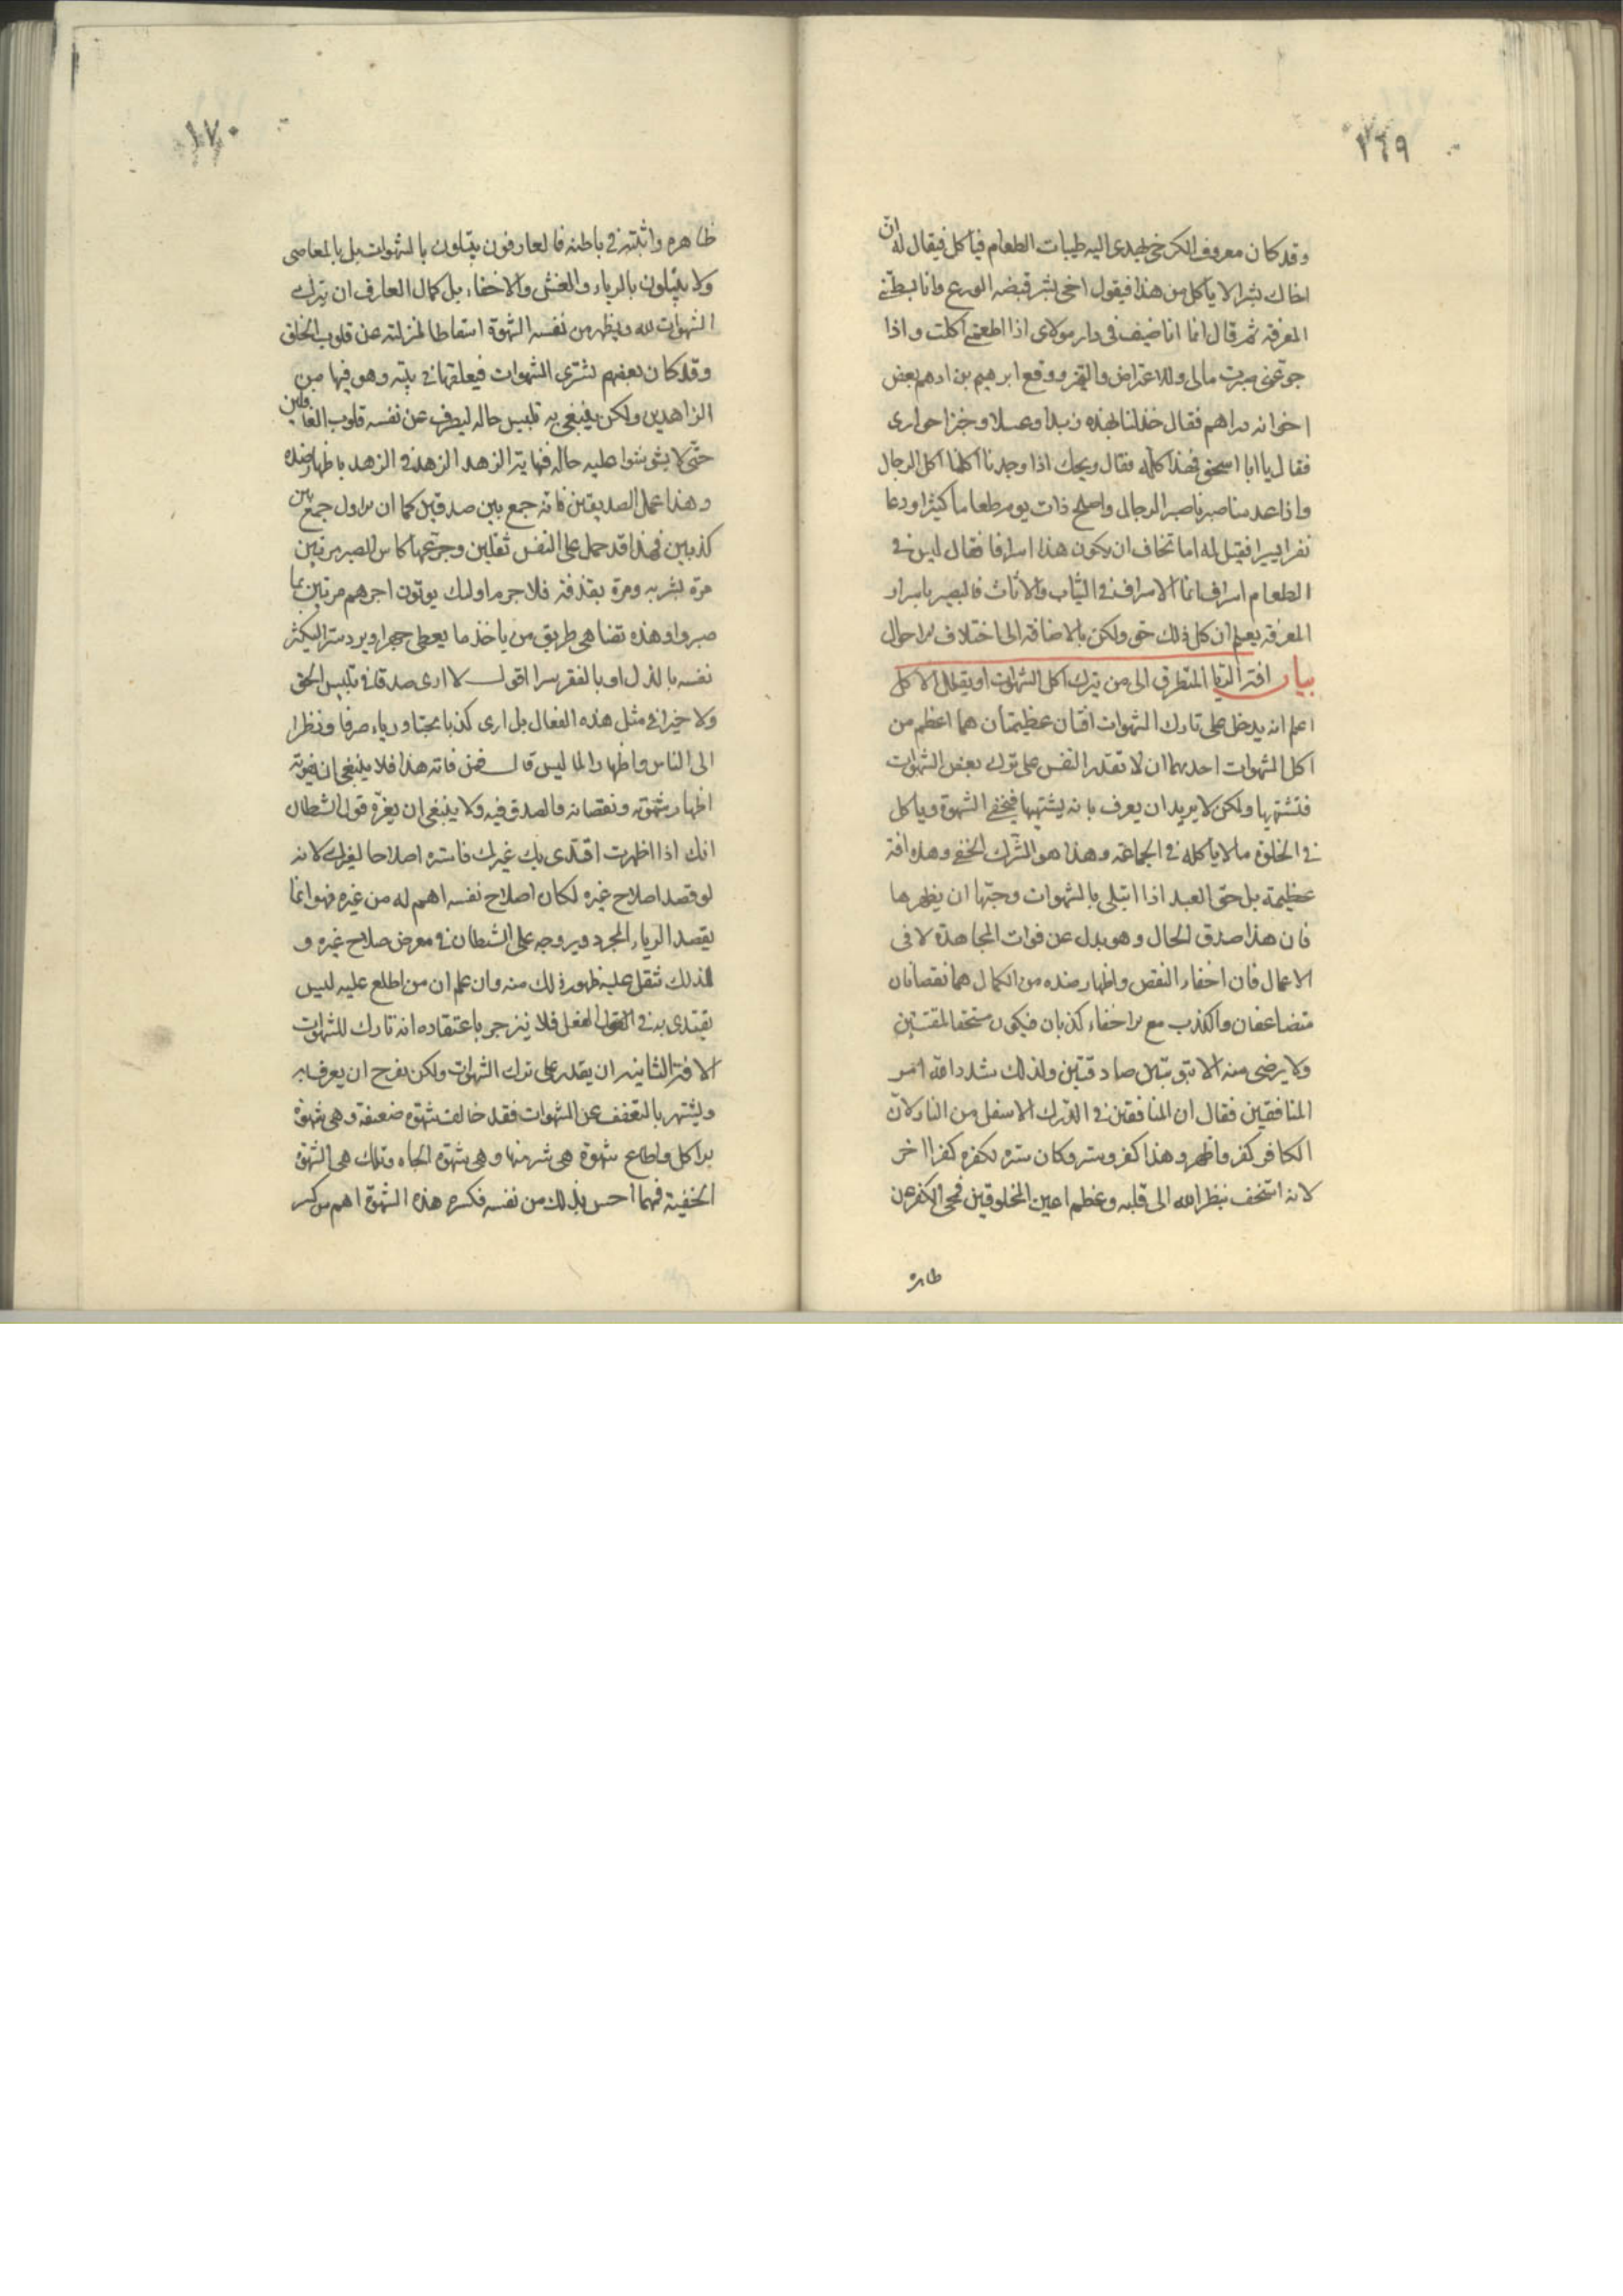 ١٦٩
وقد كان معروف الكرخى يهدى اليه طيبات الطعام فياكل فيقال له ان
اخاك بشرا لا ياكل من هذا فيقول اخى بشر قبضه الورع وانا بسطتنى
المعرفة ثم قال انما انا ضيف فى دار مولاى اذا اطعمنى اكلت واذا
جوعنى صبرت مالى وللاعتراض والتميز ودفع ابرهيم بن ادهم بعض
اخوانه دراهم فقال خذ لنا بهذه زبدا وعسلا وخبزا حوارى
فقال يا ابا اسحق بهذا كله فقال ويحك اذا وجدنا اكلنا اكل الرجال
واذا عدمنا صبرنا صبر الرجال واصلح ذات يوم طعاما كثيرا ودعا
نفرا يسيرا فقيل له اما تخاف ان يكون هذا اسرافا فقال ليس فى
الطعام اسراف انما الاسراف فى الثياب والاثاث فالبصير باسرار
المعرفة يعلم ان كل ذلك حق ولكن بالاضافة الى اختلاف الاحوال
بيان افة الريا المتطرق الى من يترك اكل الشهوات او يقلل الاكل
اعلم انه يدخل على تارك الشهوات افتان عظيمتان هما اعظم من
اكل الشهوات احديهما ان لا تقدر النفس على ترك بعض الشهوات
فتشتهيها ولكن لا يريد ان يعرف بانه يشتهيها فيخفى الشهوة وياكل
فى الخلوة ما لا ياكله فى الجماعة وهذا هو الشرك الخفى وهذه افة
عظيمة بل حق العبد اذا ابتلى بالشهوات وحبها ان يظهرها
فان هذا صدق الحال وهو بدل عن فوات المجاهدة لا فى
الاعمال فان اخفاء النقص واظهار ضده من الكمال هما نقصانان
متضاعفان والكذب مع الاخفاء كذبان فيكون مستحقا لمقتين
ولا يرضى منه الا بتوبتين صادقتين ولذلك شدد الله امر
المنافقين فقال ان المنافقين فى الدرك الاسفل من النار لان
الكافر كفر واظهر وهذا كفر وستر وكان ستره لكفره كفرا اخر
لانه استخف بنظر الله الى قلبه وعظم اعين المخلوقين فمحى الكفر عن
ظاهره
١٧٠
ظاهره واثبته فى باطنه فالعارفون يبتلون بالشهوات بل بالمعاصى
ولا يبتلون بالرياء والغش والاخفاء بل كمال العارف ان يترك
الشهوات لله ويظهر من نفسه الشهوة اسقاطا لمنزلته عن قلوب الخلق
وقد كان بعضهم يشترى الشهوات فيعلقها فى بيته وهو فيها من
الزاهدين ولكن ينبغى به تلبيس حاله ليصرف عن نفسه قلوب الغافلين
حتى لا يشوشوا عليه حاله فنهاية الزهد الزهد فى الزهد باظهار ضده
وهذا عمل الصديقين فانه جمع بين صدقين كما ان الاول جمع بين
كذبين فهذا قد حمل على النفس ثقلين وجرعها كاس الصبر مرتين
مرة بشربه ومرة بقذفه فلا جرم اولئك يوتون اجرهم مرتين بما
صبروا وهذه تضاهى طريق من ياخذ ما يعطى جهرا ويرد سرا ليكثر
نفسه بالذل او بالفقر سرا اقول لا ارى صدقا فى تلبيس الحق
ولا خيرا فى مثل هذه الفعال بل ارى كذبا بحتا ورياء صرفا ونظرا
الى الناس واظهارا لما ليس قال فمن فاته هذا فلا ينبغى ان يفوته
اظهار شهوته ونقصانه والصدق فيه ولا ينبغى ان يغره قول الشيطان
انك اذا اظهرت اقتدى بك غيرك فاستره اصلاحا لغيرك لانه
لو قصد اصلاح غيره لكان اصلاح نفسه اهم له من غيره فهو انما
يقصد الرياء المجرد ويروجه على الشيطان فى معرض صلاح غيره و
لذلك ثقل عليه ظهور ذلك منه وان علم ان من اطلع عليه ليس
يقتدى به فى الفعل فلا ينزجر باعتقاده انه تارك للشهوات
الافة الثانيه ان يقدر على ترك الشهوات ولكن يفرح ان يعرف به
ويشتهر بالتعفف عن الشهوات فقد خالف شهوة ضعيفة وهى شهوة
الاكل واطاع شهوة هى شر منها وهى شهوة الجاه وتلك هى الشهوة
الخفية فمهما احس بذلك من نفسه فكسره هذه الشهوة اهم من كسر